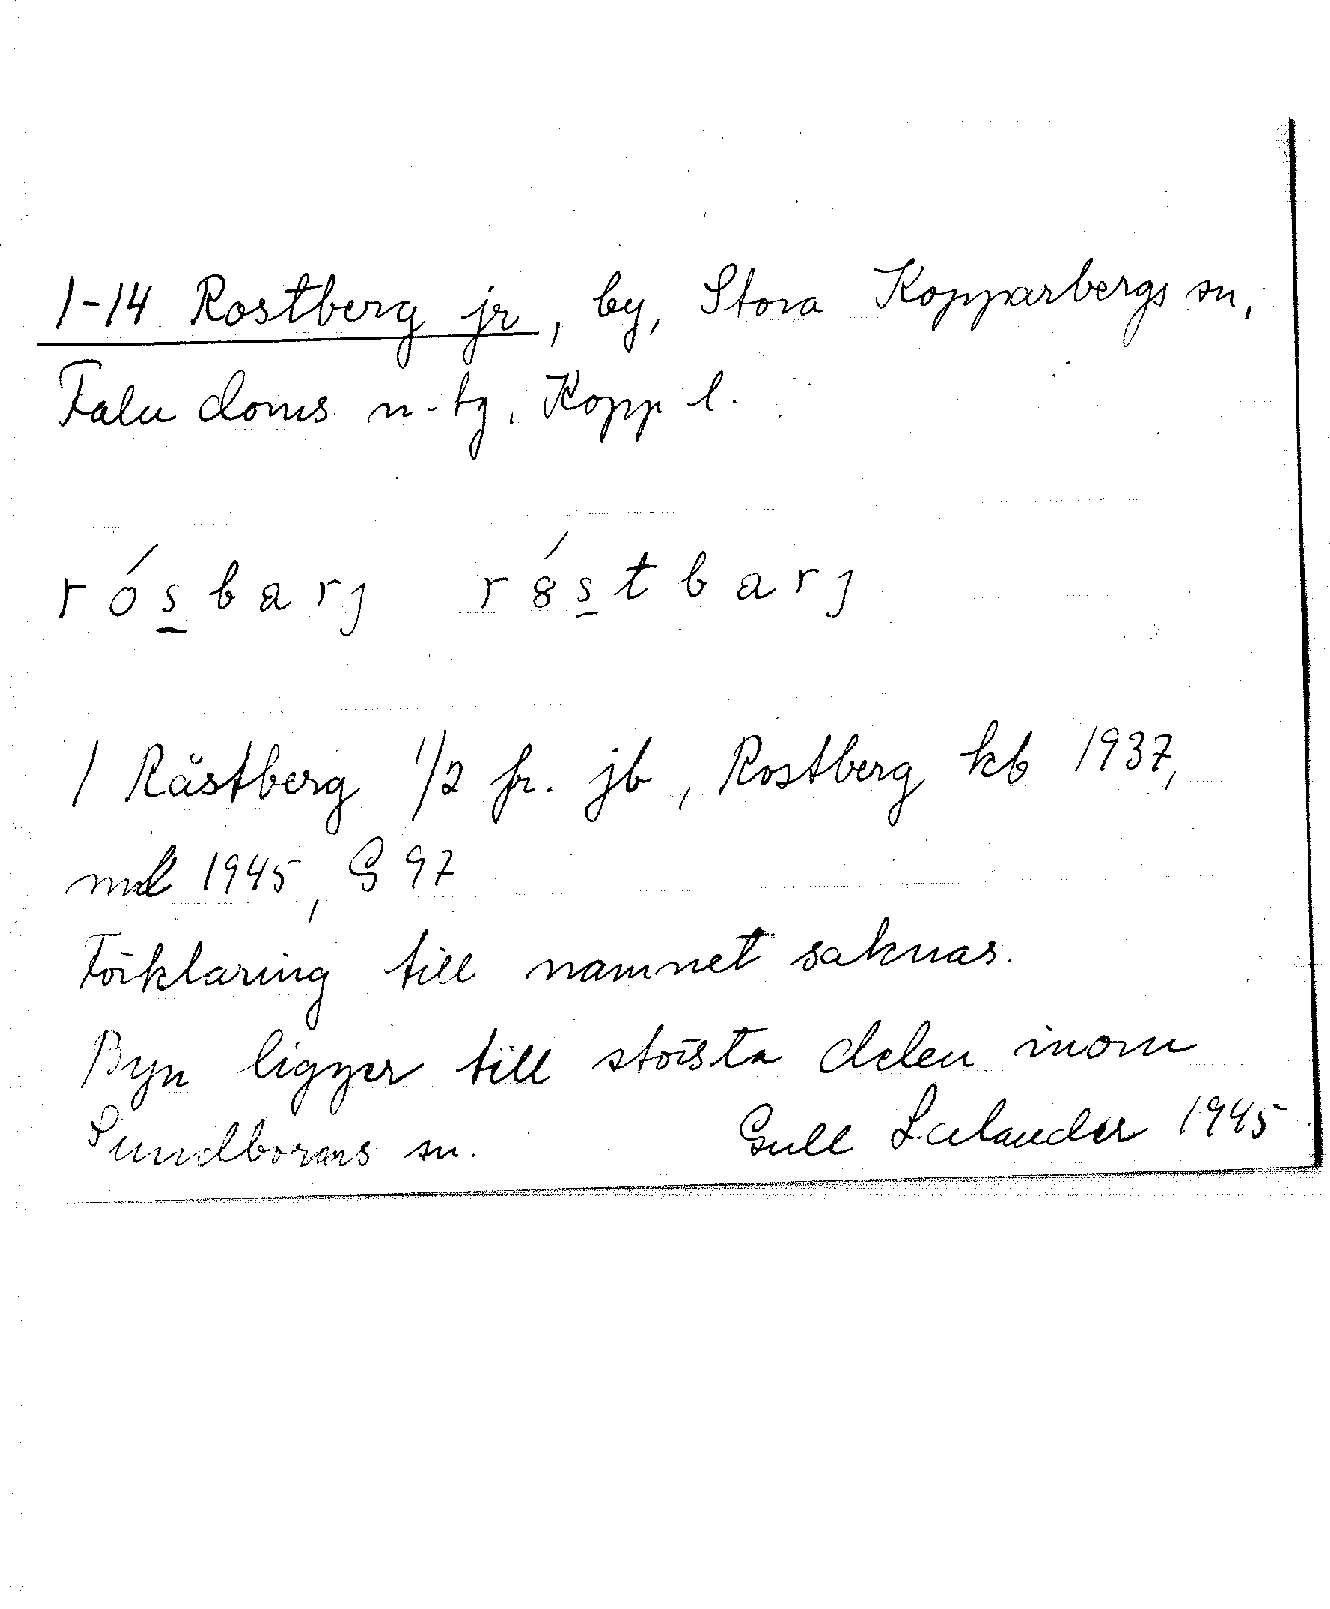 1-14 Rostberg jr, by, Stora Kopparbergs sn,
Falu doms n-tg, Kopp l.
rósbarj rȣ́stbarj
1 Råstberg 1/2 fr. jb, Rostberg kb 1937,
md 1945, G 97
Förklaring till namnet saknas.
Byn ligger till största delen inom
Sundborns sn. Gull 1945